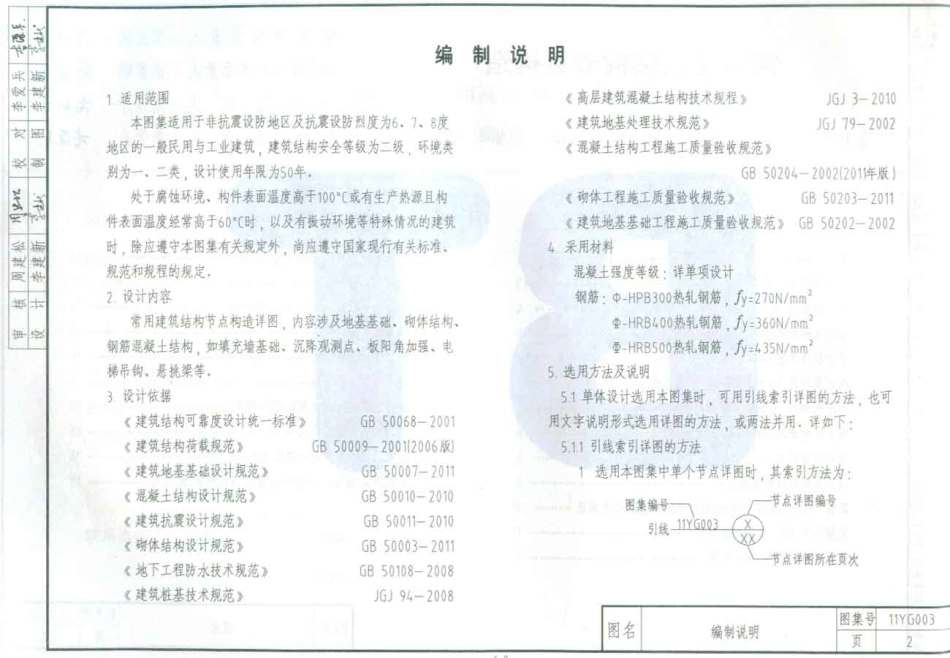 编制说明
1. 适用范围
本图集适用于非抗震设防地区及抗震设防烈度为6、7、8度
地区的一般民用与工业建筑，建筑结构安全等级为二级，环境类
别为一、二类，设计使用年限为50年。
处于腐蚀环境、构件表面温度高于100°C或有生产热源且构
件表面温度经常高于60°C时，以及有振动环境等特殊情况的建筑
时，除应遵守本图集有关规定外，尚应遵守国家现行有关标准、
规范和规程的规定。
2. 设计内容
常用建筑结构节点构造详图，内容涉及地基基础、砌体结构、
钢筋混凝土结构，如填充墙基础、沉降观测点、板阳角加强、电
梯吊钩、悬挑梁等。
3. 设计依据
《建筑结构可靠度设计统一标准》 GB 50068－2001
《建筑结构荷载规范》 GB 50009－2001(2006版)
《建筑地基基础设计规范》 GB 50007－2011
《混凝土结构设计规范》 GB 50010－2010
《建筑抗震设计规范》 GB 50011－2010
《砌体结构设计规范》 GB 50003－2011
《地下工程防水技术规范》 GB 50108－2008
《建筑桩基技术规范》 JGJ 94－2008
《高层建筑混凝土结构技术规程》 JGJ 3－2010
《建筑地基处理技术规范》 JGJ 79－2002
《混凝土结构工程施工质量验收规范》
GB 50204－2002(2011年版)
《砌体工程施工质量验收规范》 GB 50203－2011
《建筑地基基础工程施工质量验收规范》 GB 50202－2002
4. 采用材料
混凝土强度等级：详单项设计
钢筋：Φ-HPB300热轧钢筋，fy=270N/mm²
Φ-HRB400热轧钢筋，fy=360N/mm²
Φ-HRB500热轧钢筋，fy=435N/mm²
5. 选用方法及说明
5.1 单体设计选用本图集时，可用引线索引详图的方法，也可
用文字说明形式选用详图的方法，或两法并用。详如下：
5.1.1 引线索引详图的方法
1 选用本图集中单个节点详图时，其索引方法为：
图集编号
节点详图编号
引线
11YG003
X
XX
节点详图所在页次
图名 编制说明 图集号 11YG003
页 2
审核 周建松 校对 李爱兵
设计 李建新 制图 李建新